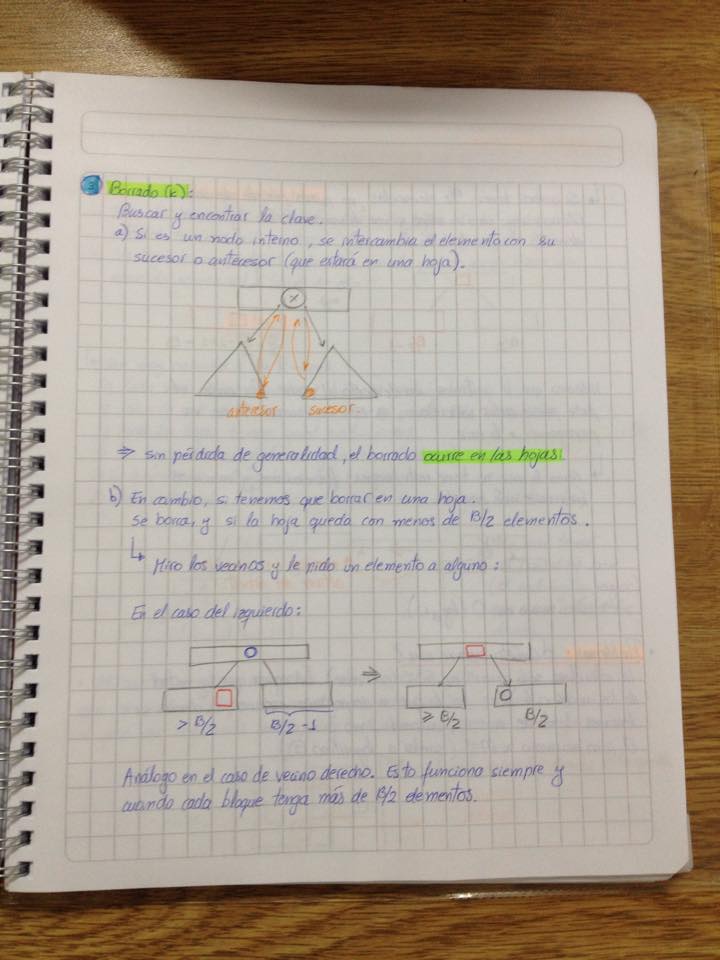 3 Borrado (k):
Buscar y encontrar la clave.
a) Si es un nodo interno, se intercambia el elemento con su
sucesor o antecesor (que estará en una hoja).
x
antecesor sucesor.
⇒ sin pérdida de generalidad, el borrado ocurre en las hojas.
b) En cambio, si tenemos que borrar en una hoja.
Se borra, y si la hoja queda con menos de B/2 elementos.
↳ Miro los vecinos y le pido un elemento a alguno:
En el caso del izquierdo:
⇒
> B/2 B/2 -1 ≥ B/2 B/2
Análogo en el caso de vecino derecho. Esto funciona siempre y
cuando cada bloque tenga más de B/2 elementos.